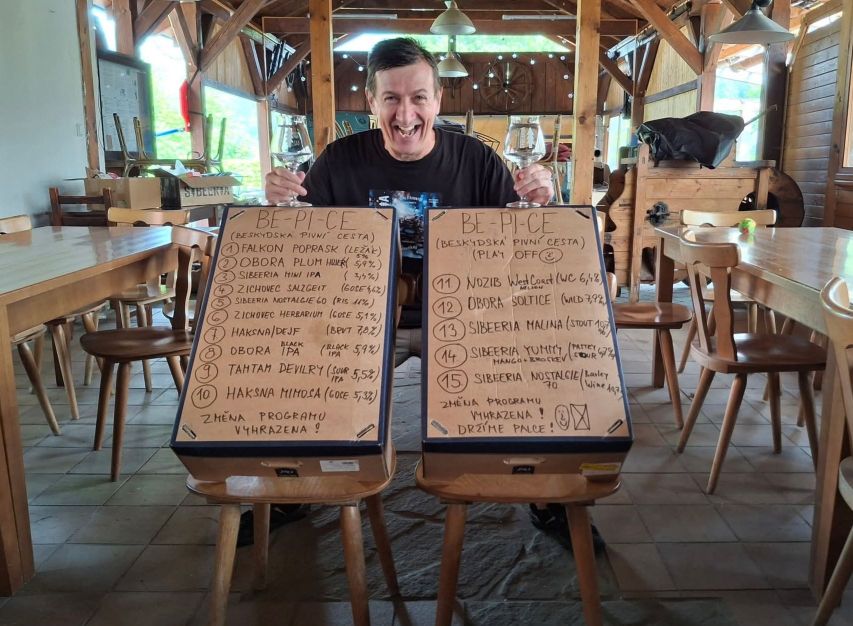 SIBEERIA
BE-PI-CE
(BESKYDSKÁ PIVNÍ CESTA)
1 FALKON POPRASK (LEŽÁK) 5%
2 OBORA PLUM 5,9%
3 SIBEERIA MINI IPA 3,4%
4 ZICHOVEC SALZGEIT (GOSE 4,6%
5 SIBEERIA NOSTALGIE 60 (RIS 11%)
6 ZICHOVEC HERBARIUM (GOSE 5,1%
7 HAKSNA/DEJF 7,8%
8 OBORA BLACK IPA (BLACK IPA 5,9%
9 TAMTAM DEVILRY (SOUR IPA 5,5%
10 HAKSNA MIMOSA (GOSE 5,3%
ZMĚNA PROGRAMU
VYHRAZENA !
BE-PI-CE
(BESKYDSKÁ PIVNÍ CESTA)
(PLAY OFF
11 NOZIB West Coast (WC 6,1%
12 OBORA SOLTICE (WILD 7,9%
13 SIBEERIA MALINA (STOUT
14 SIBEERIA YUMMY
MANGO +
15 SIBEERIA NOSTALGIE 70 (Barley Wine
ZMĚNA PROGRAMU
VYHRAZENA !
DRŽÍME PALCE !